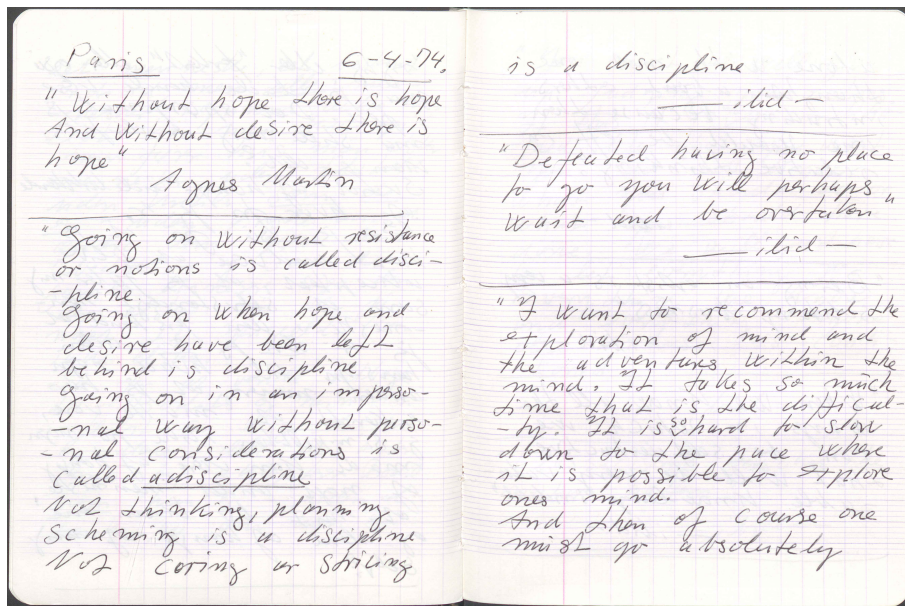 Paris 6-4-74.
"Without hope there is hope
And without desire there is
hope"
Agnes Martin
"Going on without resistance
or notions is called disci-
-pline.
Going on when hope and
desire have been left
behind is discipline
Going on in an imperso-
-nal way without perso-
-nal considerations is
called a discipline
Not thinking, planning
scheming is a discipline
Not caring or striving
is a discipline
— ibid —
"Defeated having no place
to go you will perhaps
wait and be overtaken"
— ibid —
"I want to recommend the
exploration of mind and
the adventures within the
mind. It takes so much
time that is the difficul-
-ty. It is so hard to slow
down to the pace where
it is possible to explore
ones mind.
And then of course one
must go absolutely